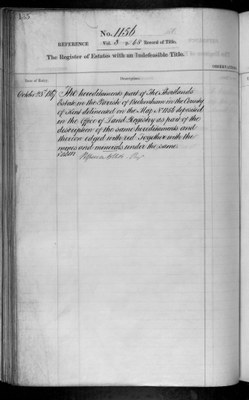 No. 1156
REFERENCE Vol. 3 p. 68 Record of Title.
The Register of Estates with an Indefeasible Title.
Date of Entry. Description.
October 23rd 1867 The hereditaments part of The Shortlands
Estate in the Parish of Beckenham in the County
of Kent delineated on the Map No. 1156 deposited
in the Office of Land Registry as part of the
description of the same hereditaments and
thereon edged with red Together with the
mines and minerals under the same.